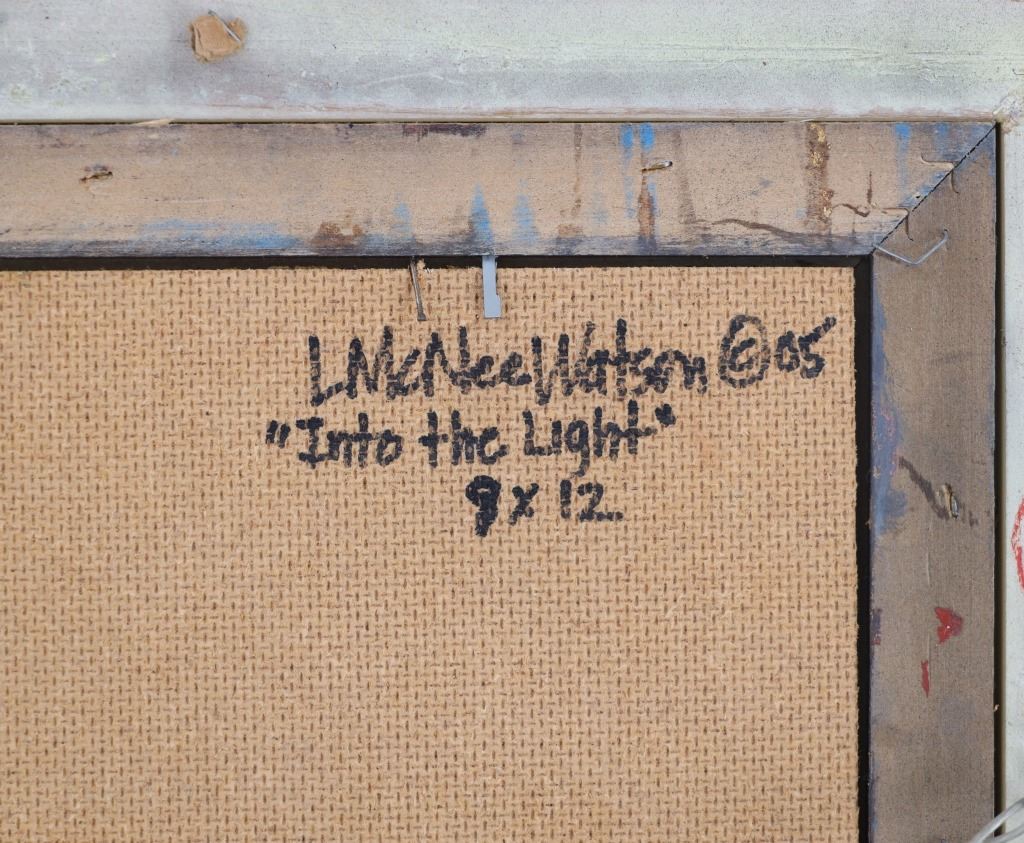 LMcNeeWatson © 05
"Into the Light"
9 x 12